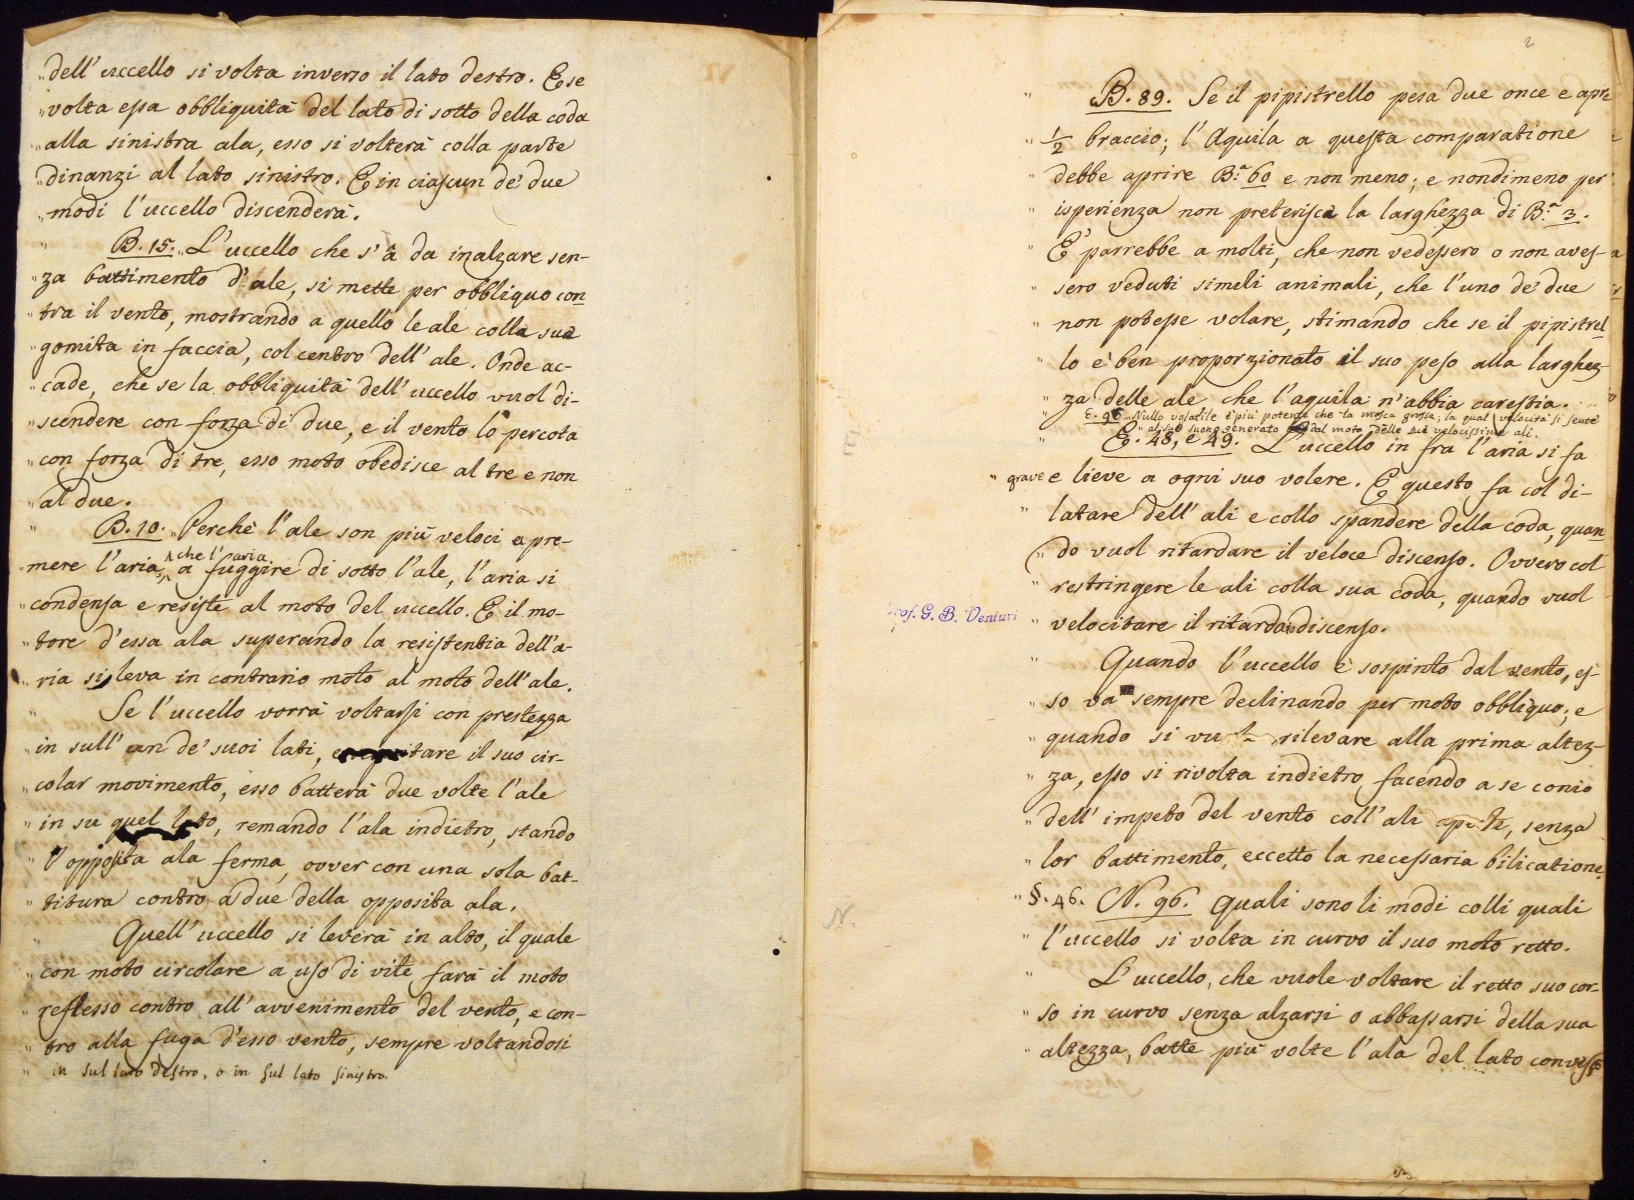 "dell' uccello si volta inverso il lato destro. E se
"volta essa obbliquità del lato di sotto della coda
"alla sinistra ala, esso si volterà colla parte
"dinanzi al lato sinistro. E in ciascun de' due
"modi l'uccello discenderà.
" B. 15. "L'uccello che s'à da inalzare sen-
"za battimento d'ale, si mette per obbliquo con
"tra il vento, mostrando a quello le ale colla sua
"gomita in faccia, col centro dell' ale. Onde ac-
"cade, che se la obbliquità dell' uccello vuol di-
"scendere con forza di due, e il vento lo percota
"con forza di tre, esso moto obedisce al tre e non
"al due.
" B. 10. "Perchè l'ale son più veloci a pre-
"mere l'aria, che l'aria a fuggire di sotto l'ale, l'aria si
"condensa e resiste al moto del uccello. E il mo-
"tore d'essa ala superando la resistentia dell'a-
"ria si leva in contrario moto al moto dell'ale.
" Se l'uccello vorrà voltarsi con prestezza
"in sull' un de' suoi lati, e itare il suo cir-
"colar movimento, esso batterà due volte l'ale
"in su quel lato, remando l'ala indietro, stando
"l'opposita ala ferma, ovver con una sola bat-
"titura contro a due della opposita ala.
" Quell' uccello si leverà in alto, il quale
"con moto circolare a uso di vite farà il moto
"reflesso contro all' avvenimento del vento, e con-
"tro alla fuga d'esso vento, sempre voltandosi
" in sul lato destro, o in sul lato sinistro.
2
" B. 89. Se il pipistrello pesa due once e apre
" 1/2 braccio; l'Aquila a questa comparatione
" debbe aprire B.ª 60 e non meno; e nondimeno per
" isperienza non preterisca la larghezza di B.ª 3.
" E' parrebbe a molti, che non vedessero o non aves-
" sero veduti simili animali, che l'uno de' due
" non potesse volare, stimando che se il pipistrel
" lo è ben proporzionato il suo peso alla larghez-
" za delle ale che l'aquila n'abbia carestia.
" E. 96. "Nullo volatile è più potente che la mosca grossa; la qual velocità si sente
" al suo suono generato dal moto delle sue velocissime ali.
E
" E. 48, e 49. L'uccello in fra l'aria si fa
" grave e lieve a ogni suo volere. E questo fa col di-
" latare dell' ali e collo spandere della coda, quan
" do vuol ritardare il veloce discenso. Ovvero col
" restringere le ali colla sua coda, quando vuol
Prof. G. B. Venturi
" velocitare il ritardan discenso.
" Quando l'uccello è sospinto dal vento, es-
" so va sempre declinando per moto obbliquo; e
" quando si vuole rilevare alla prima altez-
" za, esso si rivolta indietro facendo a se conio
" dell' impeto del vento coll' ali aperte, senza
" lor battimento, eccetto la necessaria bilicatione.
N.
" §. 46. N. 96. Quali sono li modi colli quali
" l'uccello si volta in curvo il suo moto retto.
" L'uccello, che vuole voltare il retto suo cor-
" so in curvo senza alzarsi o abbassarsi della sua
" altezza, batte più volte l'ala del lato convesso